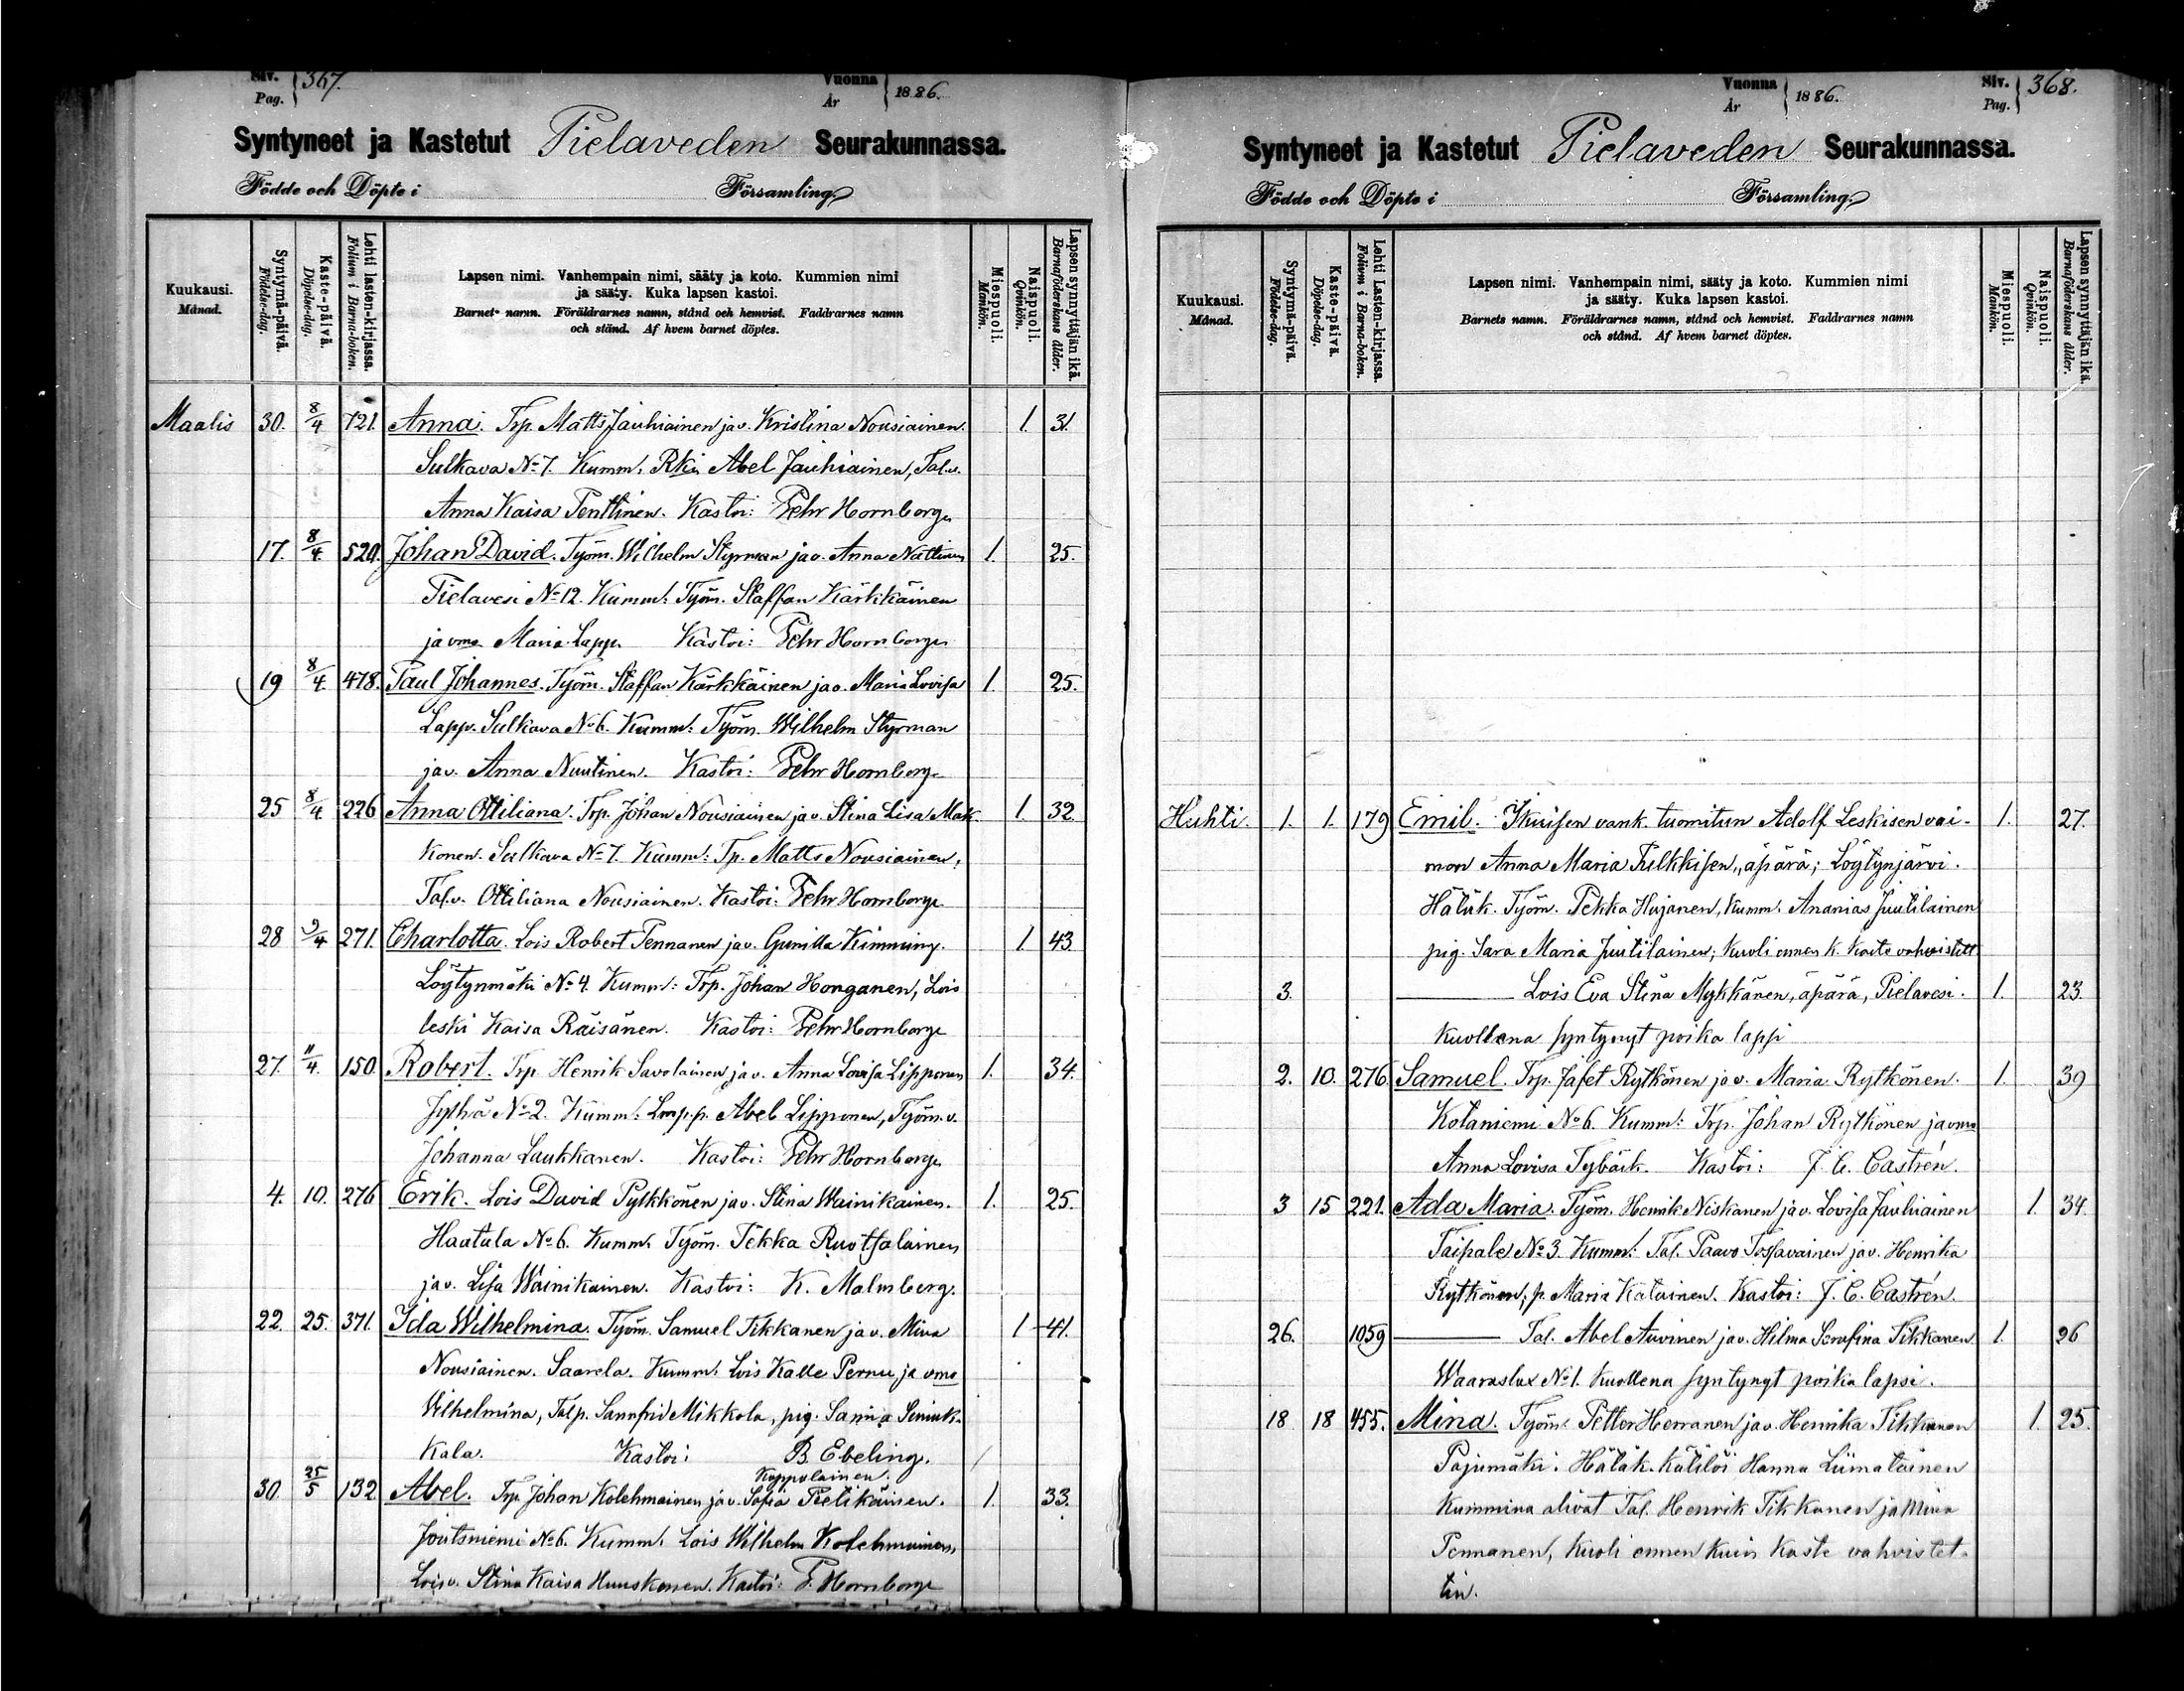 Siv. Pag. } 367.
Vuonna År } 1886.
Syntyneet ja Kastetut Pielaveden Seurakunnassa.
Födde och Döpte i Församling.
Kuukausi. Månad.
Syntymä-päivä. Födelse-dag.
Kaste-päivä. Döpelse-dag.
Lehti lasten-kirjassa. Folium i Barna-boken.
Lapsen nimi. Vanhempain nimi, sääty ja koto. Kummien nimi
ja sääty. Kuka lapsen kastoi.
Barnets namn. Föräldrarnes namn, stånd och hemvist. Faddrarnes namn
och stånd. Af hvem barnet döptes.
Miespuoli. Mankön.
Naispuoli. Qvinkön.
Lapsen synnyttäjän ikä. Barnaföderskans ålder.
Maalis 30. 8/4 721. Anna. Trp. Matts Jauhiainen ja v. Kristina Nousiainen. 1. 31.
Sulkava No 7. Kumm. Rki Abel Jauhiainen, Tal.v.
Anna Kaisa Penttinen. Kastoi: Pehr Hornborg.
17. 8/4 520. Johan David. Työm. Wilhelm Styrman ja v. Anna Nuttinen 1. 25.
Pielavesi No 12. Kumm: Työm. Staffan Kärkkäinen
ja vmo Maria Lapp. Kastoi: Pehr Hornborg.
19 8/4. 478. Paul Johannes. Työm. Staffan Kärkkäinen ja v. Maria Lovisa 1. 25.
Lapp. Sulkava No 6. Kumm: Työm. Wilhelm Styrman
ja v. Anna Nuutinen. Kastoi: Pehr Hornborg.
25 8/4 226 Anna Ottiliana. Trp. Johan Nousiainen ja v. Stina Lisa Mak- 1. 32.
konen. Sulkava No 7. Kumm: Tp. Matts Nousiainen,
Tal.v. Ottiliana Nousiainen. Kastoi: Pehr Hornborg.
28 9/4 271. Charlotta. Lois Robert Pennanen ja v. Gunilla Kimming. 1 43
Löytynmäki No 4. Kumm: Trp. Johan Honganen, Lois
leski Kaisa Räisänen. Kastoi: Pehr Hornborg
27. 11/4. 150. Robert. Trp. Henrik Savolainen ja v. Anna Lovisa Lipponen 1. 34.
Jylhä No 2. Kumm: Lmp.p. Abel Lipponen, Työm.v.
Johanna Laukkanen. Kastoi: Pehr Hornborg.
4. 10. 276 Erik. Lois David Pylkkönen ja v. Stina Wainikainen. 1. 25.
Haatala No 6. Kumm. Työm. Pekka Ruotsalainen
ja v. Lisa Wainikainen. Kastoi: K. Malmberg.
22. 25. 371. Ida Wilhelmina. Työm. Samuel Tikkanen ja v. Mina 1 41.
Nousiainen. Saarela. Kumm: Lois Kalle Pernu, ja vmo
Wilhelmina, Talp. Sannfrid Mikkola, pig.
kala. Kastoi: B. Ebeling.
Koppolainen.
30. 25/5 132 Abel. Trp. Johan Kolehmainen ja v. Sofia Pietikäinen. 1. 33.
Joutsniemi No 6. Kumm. Lois Wilhelm Kolehmainen
Lois v. Stina Kaisa Huuskonen. Kastoi: P. Hornborg
Vuonna År } 1886.
Siv. Pag. } 368.
Syntyneet ja Kastetut Pielaveden Seurakunnassa.
Födde och Döpte i Församling.
Kuukausi. Månad.
Syntymä-päivä. Födelse-dag.
Kaste-päivä Döpelse-dag.
Lehti Lasten-kirjassa. Folium i Barna-boken.
Lapsen nimi. Vanhempain nimi, sääty ja koto. Kummien nimi
ja sääty. Kuka lapsen kastoi.
Barnets namn. Föräldrarnes namn, stånd och hemvist. Faddrarnes namn
och stånd. Af hvem barnet döptes.
Miespuoli. Mankön.
Naispuoli. Qvinkön.
Lapsen synnyttäjän ikä. Barnaföderskans ålder.
Huhti. 1. 1. 179 Emil. Ikuisen vank. tuomitun Adolf Leskisen vai- 1. 27.
mon Anna Maria Pulkkisen, äpärä; Löytynjärvi.
Hätäk. Työm. Pekka Hujanen, Kumm. Ananias Juutilainen
pig. Sara Maria Juutilainen; kuoli ennen k. kaste vahvistett.
3. ——— Lois Eva Stina Mykkänen, äpärä, Pielavesi. 1. 23.
Kuollena syntynyt poika lapsi
2. 10. 276. Samuel. Trp. Jafet Rytkönen ja v. Maria Rytkönen. 1. 39
Kotaniemi No 6. Kumm: Trp. Johan Rytkönen ja vmo
Anna Lovisa Tybäck. Kastoi: J. C. Castrén.
3 15 221. Ada Maria. Työm. Henrik Niskanen ja v. Lovisa Jauhiainen 1. 34.
Taipale No 3. Kumm: Tal. Paavo Tossavainen ja v. Henrika
Rytkönen, p. Maria Katainen. Kastoi: J. C. Castrén.
26. 1059 ——— Tal. Abel Auvinen ja v. Hilma Serafina Tikkanen 1. 26
Waaraslax No 1. Kuollena syntynyt poika lapsi.
18 18 455. Mina. Työm. Petter Herranen ja v. Henrika Tikkanen 1. 25.
Pajumäki. Hätäk. Kätilöi Hanna Liimatainen
Kummina olivat Tal. Henrik Tikkanen ja Mina
Pennanen, Kuoli ennen kuin kaste vahvistet-
tiin.